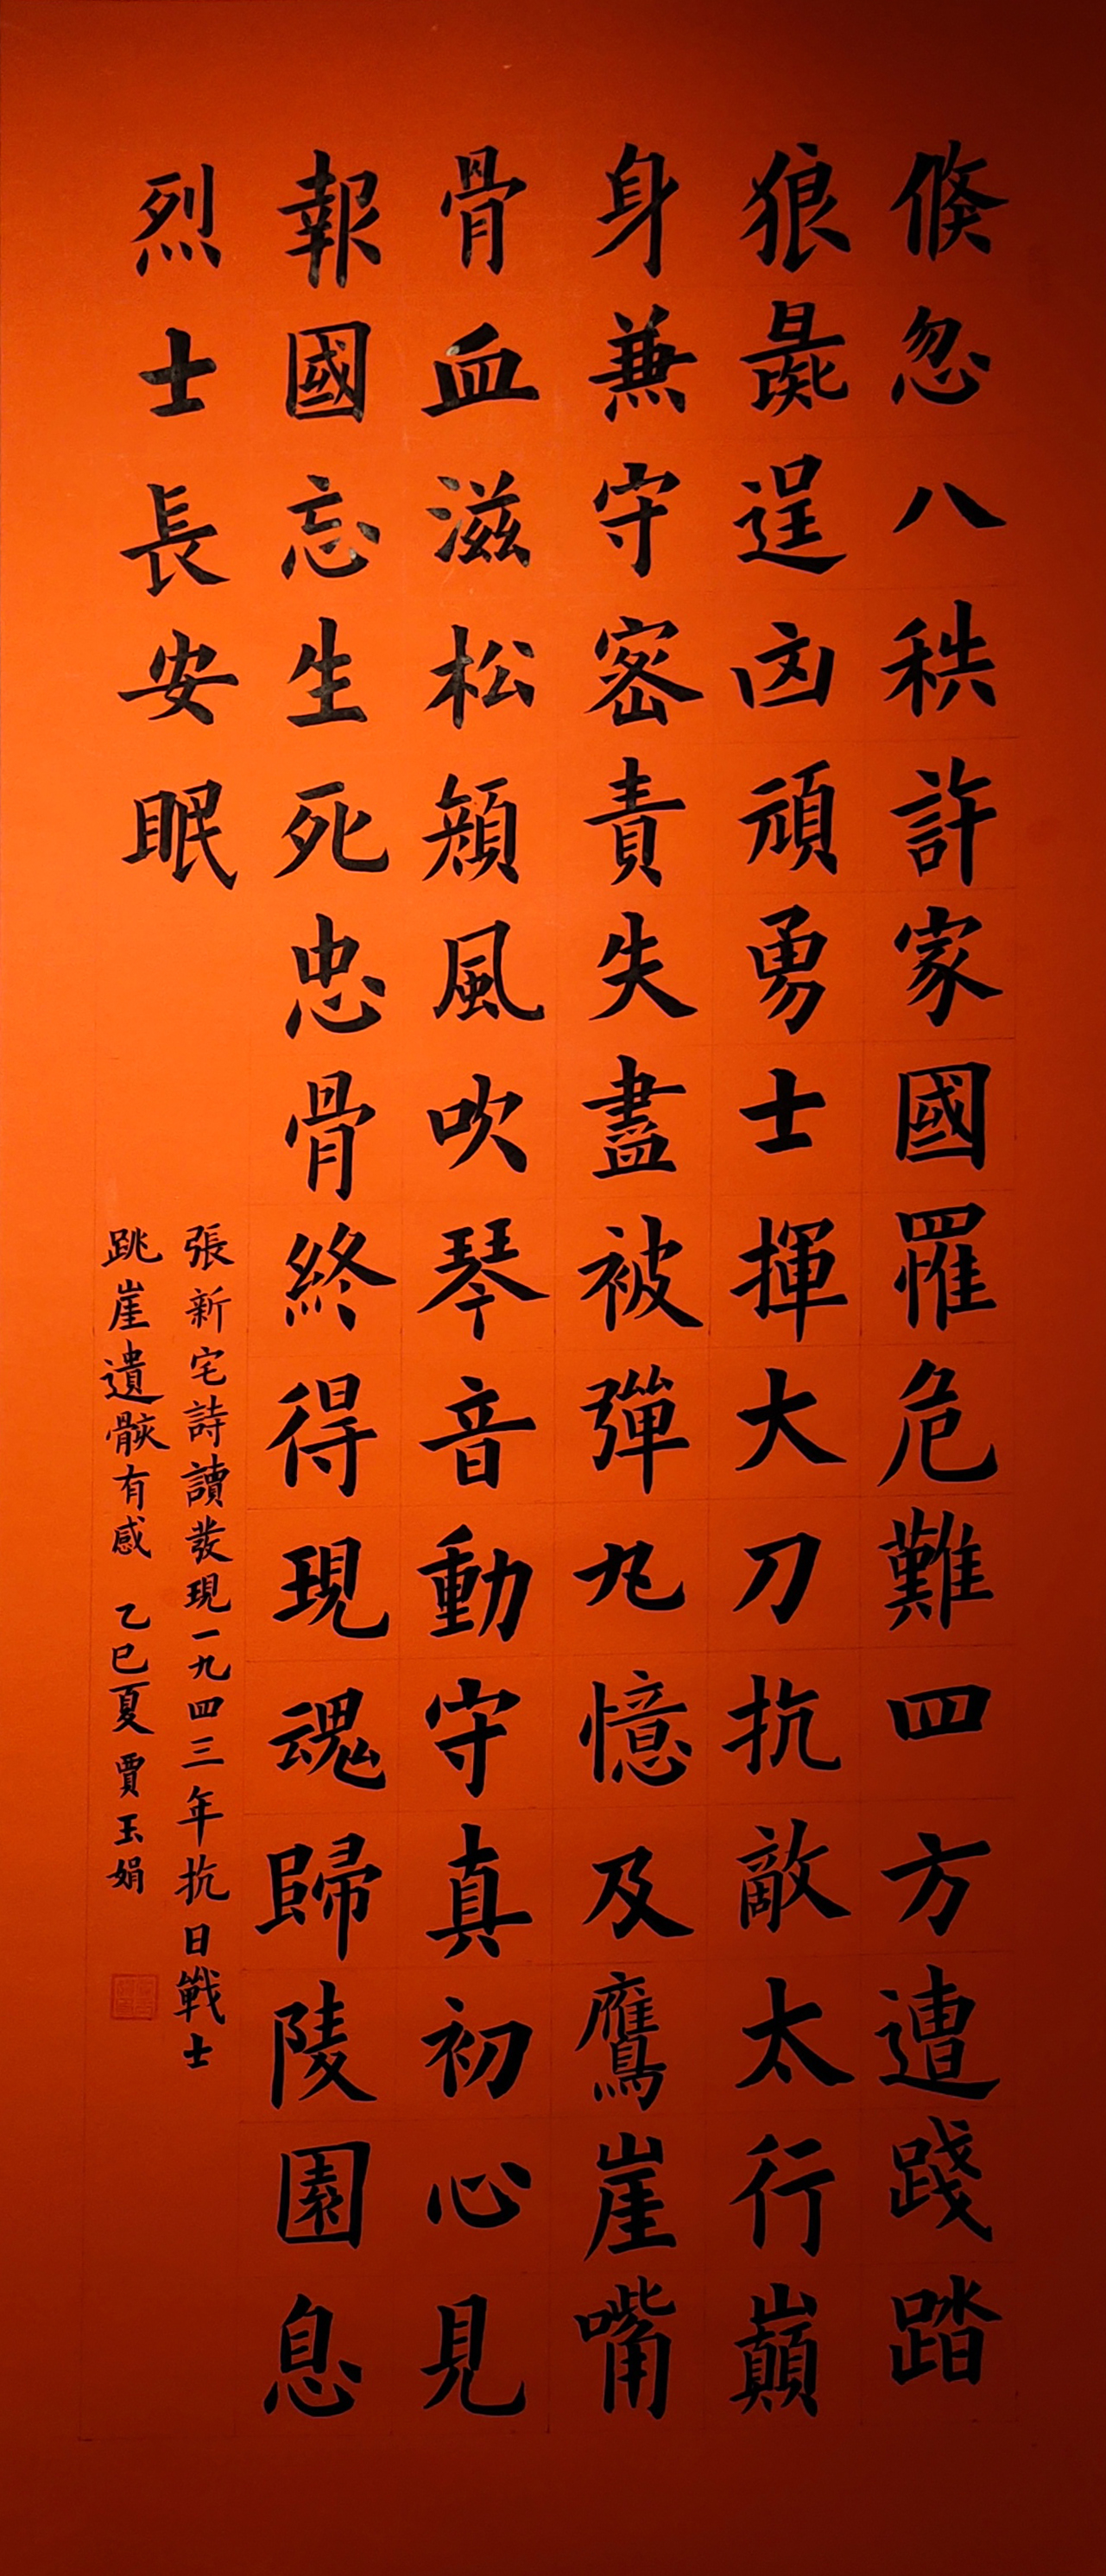 倏忽八秩許家國罹危難四方遭踐踏
狼彘逞凶頑勇士揮大刀抗敵太行巔
身兼守密責失盡被彈丸憶及鷹崖嘴
骨血滋松頴風吹琴音動守真初心見
報國忘生死忠骨終得現魂歸陵園息
烈士長安眠
張新宅詩讀發現一九四三年抗日戰士
跳崖遺骸有感 乙巳夏 賈玉娟